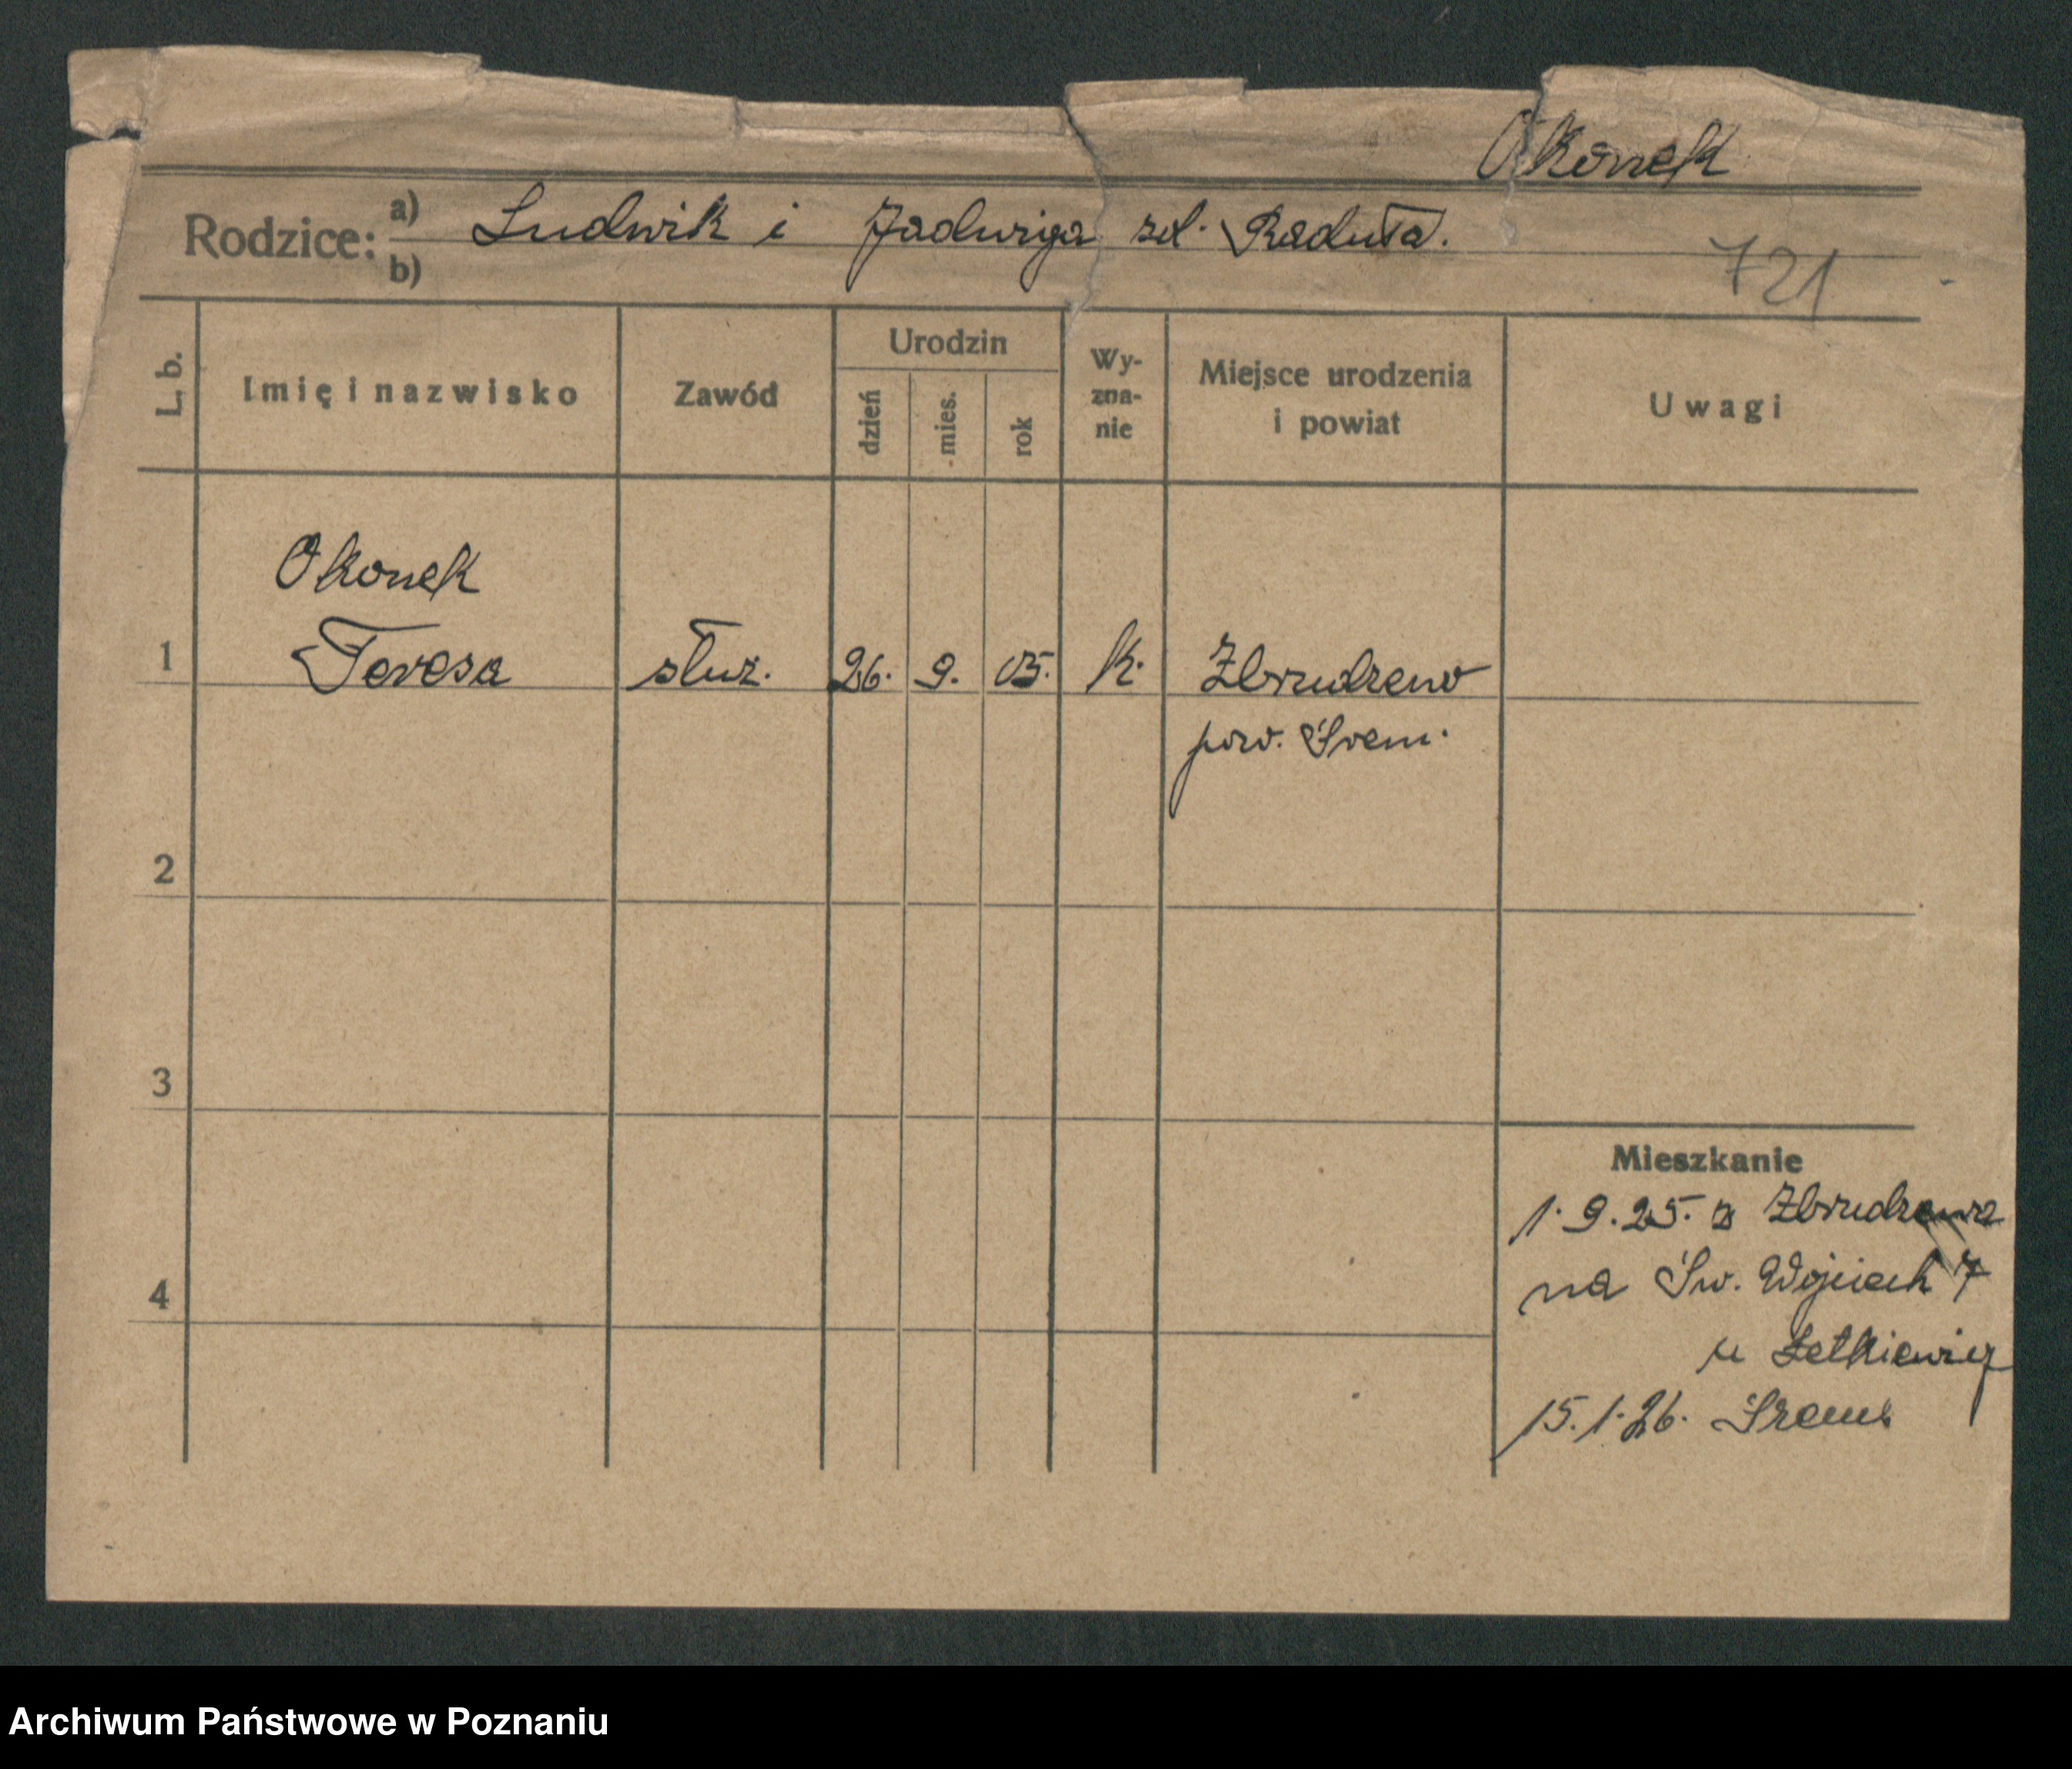 Okonek
Rodzice: a) Ludwik i Jadwiga zd. Raduła.
b)
721
L. b.
Imię i nazwisko
Zawód
Urodzin
dzień
mies.
rok
Wy-
zna-
nie
Miejsce urodzenia
i powiat
Uwagi
Okonek
1 Teresa służ. 26. 9. 05. k. Zbrudzewo
pow. Śrem.
2
3
Mieszkanie
1.9.25. z Zbrudzewa
na Św. Wojciech 7
4
u Letkiewicz
15.1.26. Śrem
Archiwum Państwowe w Poznaniu